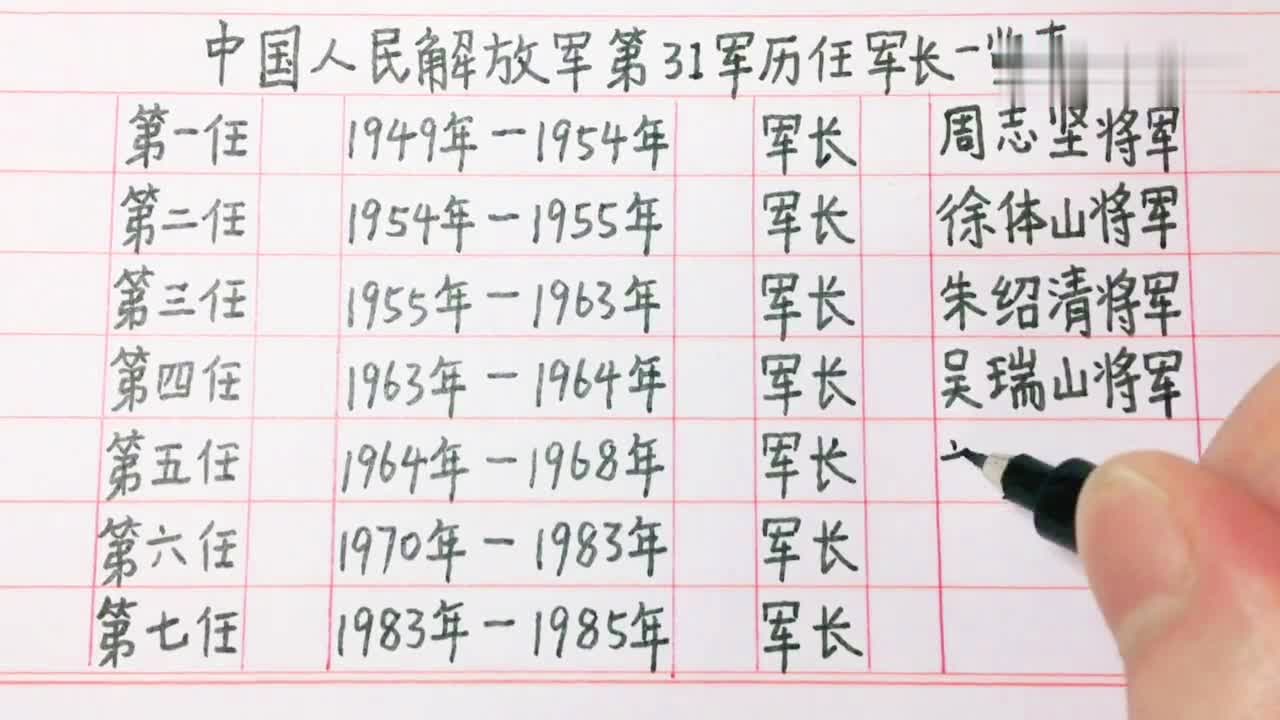 中国人民解放军第31军历任军长一
第一任 1949年－1954年 军长 周志坚将军
第二任 1954年－1955年 军长 徐体山将军
第三任 1955年－1963年 军长 朱绍清将军
第四任 1963年－1964年 军长 吴瑞山将军
第五任 1964年－1968年 军长
第六任 1970年－1983年 军长
第七任 1983年－1985年 军长